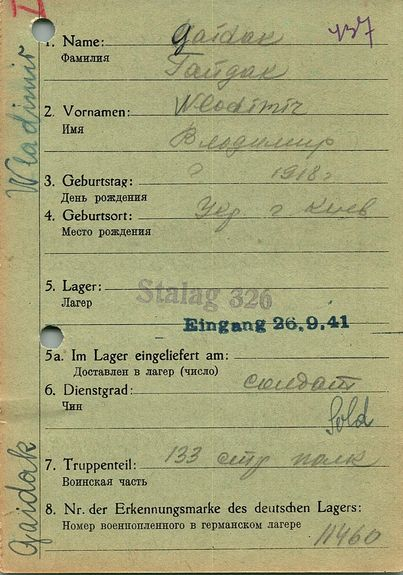 I
437
1. Name: Gaidak
Фамилия
Гайдак
2. Vornamen: Wlodimir
Имя
Владимир
3. Geburtstag: ? 1918 г
День рождения
4. Geburtsort: Укр г Киев
Место рождения
5. Lager: Stalag 326
Лагер
Eingang 26.9.41
5a. Im Lager eingeliefert am:
Доставлен в лагер (число)
6. Dienstgrad: солдат
Чин
Sold
7. Truppenteil: 133 стр полк
Воинская часть
8. Nr. der Erkennungsmarke des deutschen Lagers:
Номер военнопленного в германском лагере
11460
Wladimir
Gaidak